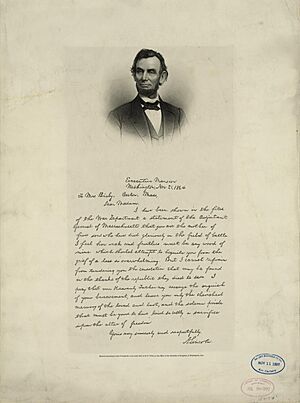 Executive Mansion
Washington, Nov 21, 1864
To Mrs Bixby, Boston, Mass,
Dear Madam,
I have been shown in the files
of the War Department a statement of the Adjutant
General of Massachusetts that you are the mother of
five sons who have died gloriously on the field of battle
I feel how weak and fruitless must be any word of
mine which should attempt to beguile you from the
grief of a loss so overwhelming. But I cannot refrain
from tendering you the consolation that may be found
in the thanks of the republic they died to save. I
pray that our Heavenly Father may assuage the anguish
of your bereavement, and leave you only the cherished
memory of the loved and lost, and the solemn pride
that must be yours to have laid so costly a sacrifice
upon the altar of freedom
Yours very sincerely and respectfully
A. Lincoln